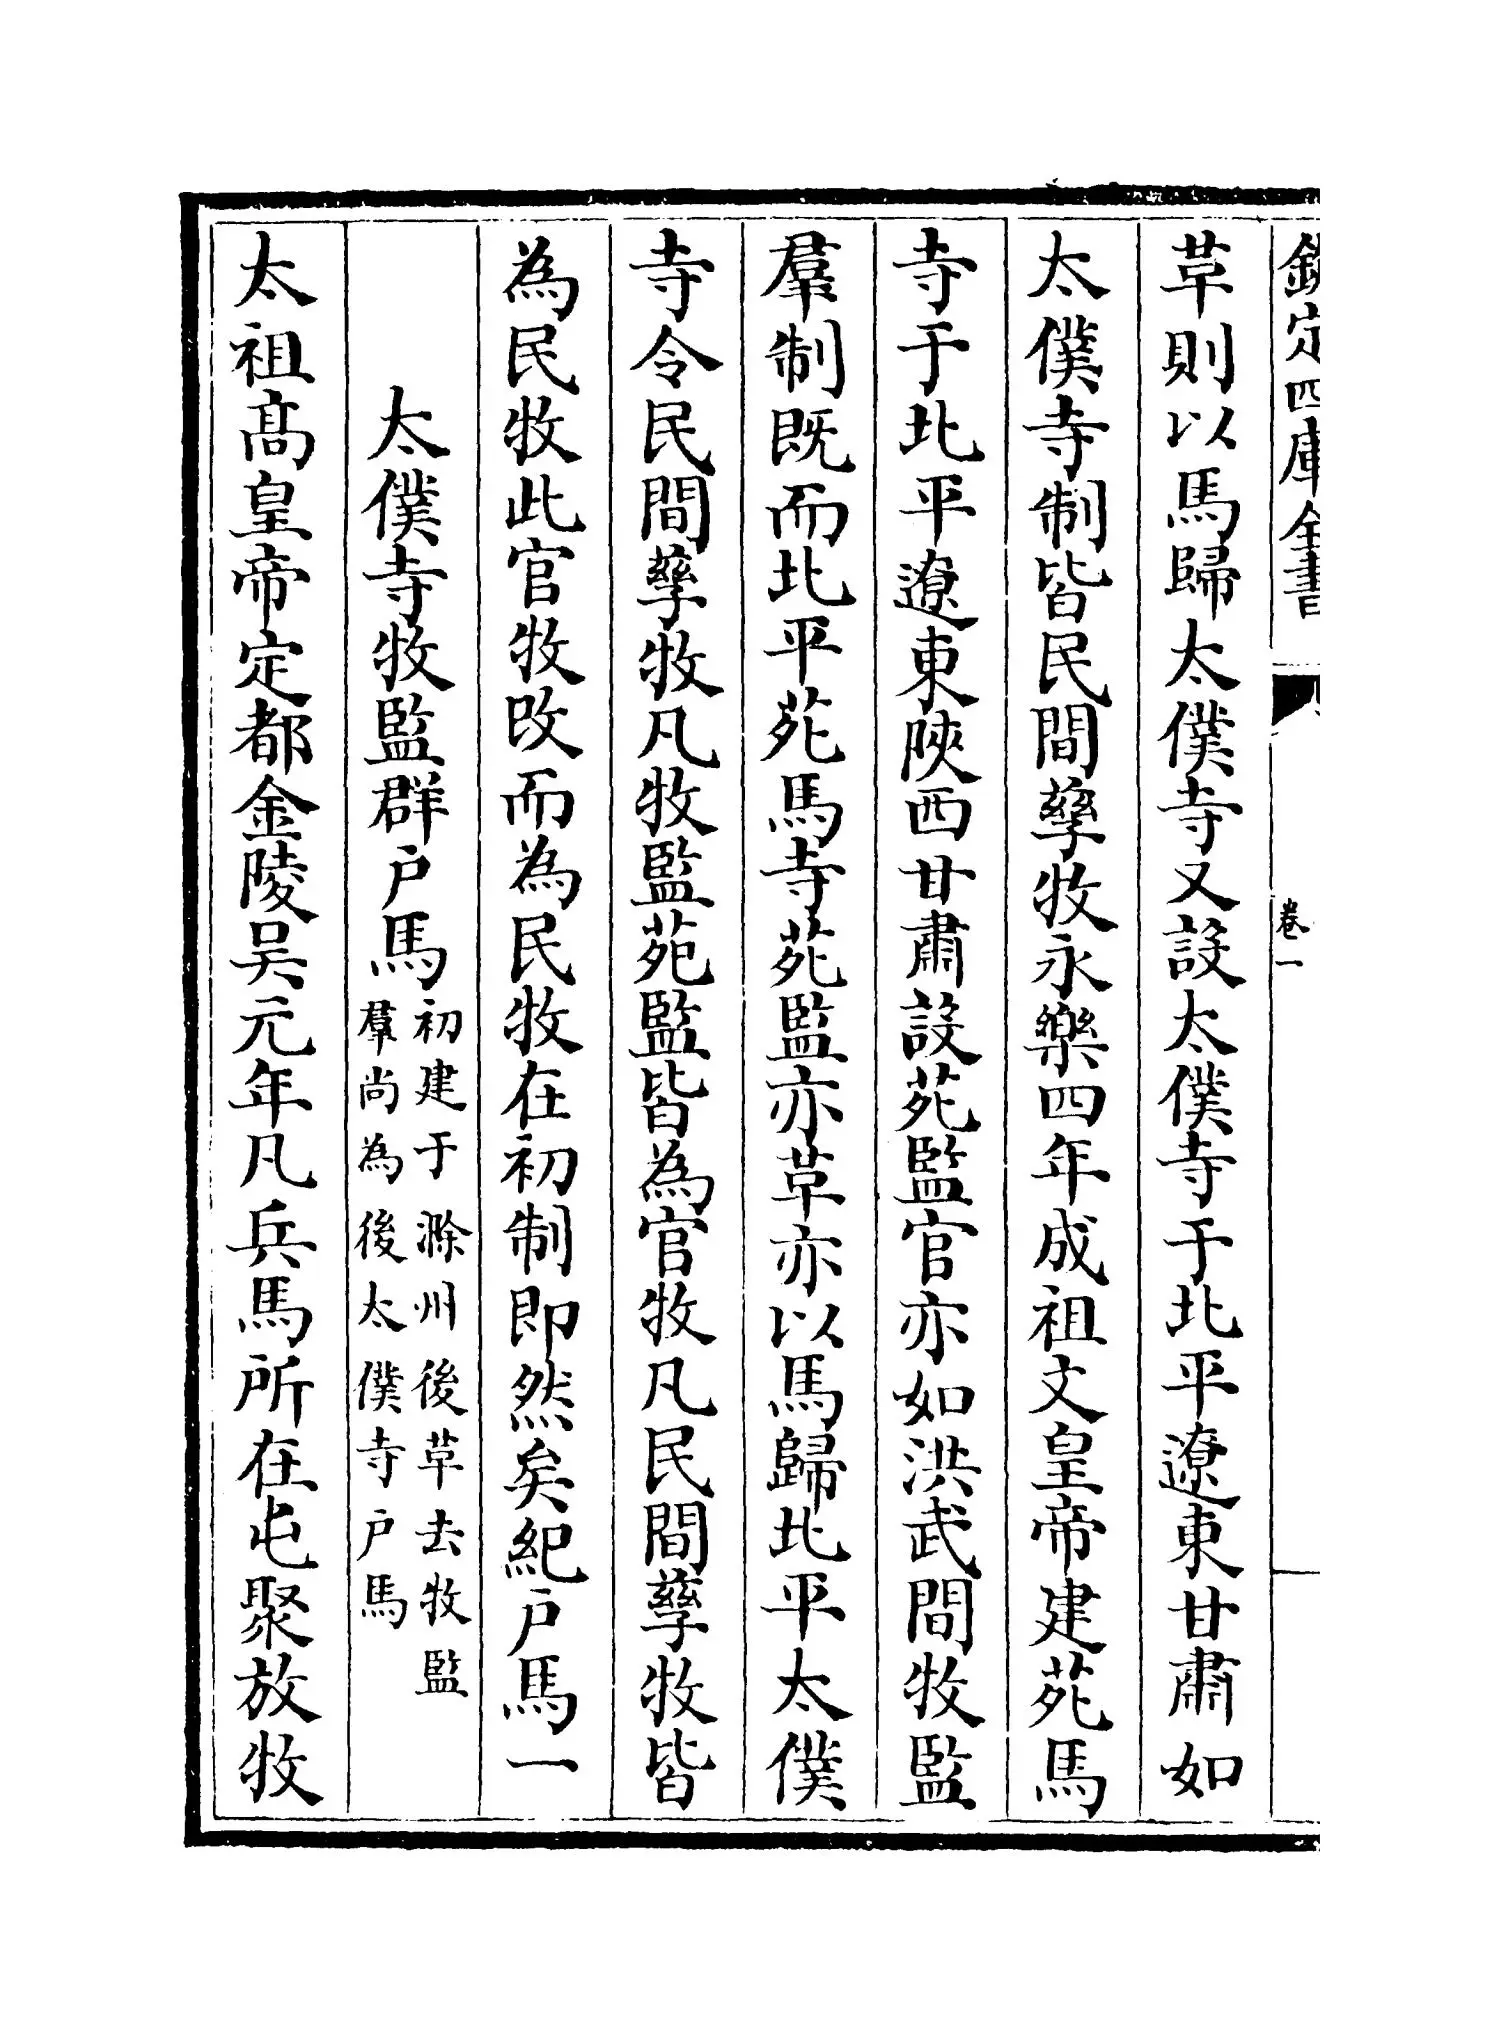 欽定四庫全書
卷一
草則以馬歸太僕寺又設太僕寺于北平遼東甘肅如
太僕寺制皆民間孳牧永樂四年成祖文皇帝建苑馬
寺于北平遼東陜西甘肅設苑監官亦如洪武間牧監
羣制既而北平苑馬寺苑監亦草亦以馬歸北平太僕
寺令民間孳牧凡牧監苑監皆為官牧凡民間孳牧皆
為民牧此官牧改而為民牧在初制即然矣紀戶馬一
太僕寺牧監群戶馬初建于滁州後草去牧監
羣尚為後太僕寺戶馬
太祖高皇帝定都金陵吳元年凡兵馬所在屯聚放牧